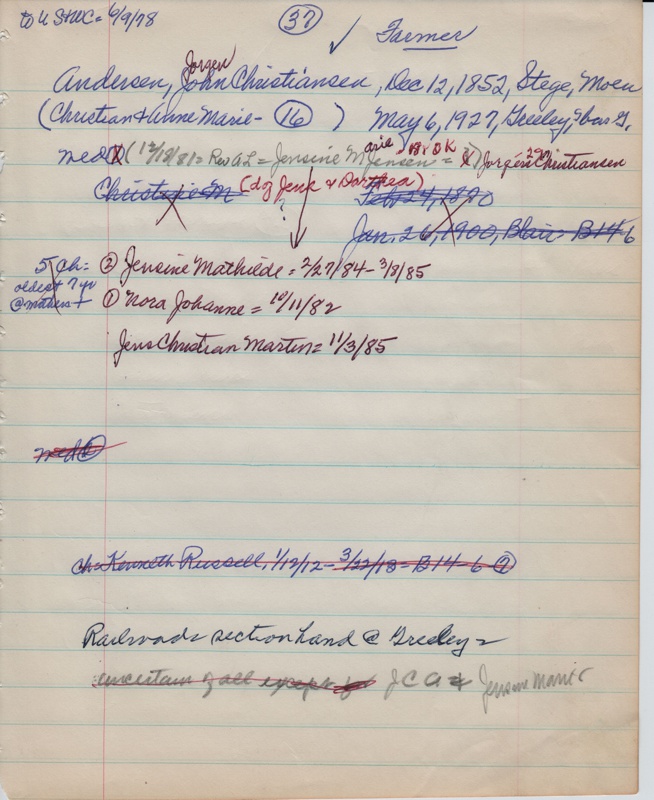 to U S NWC = 6/9/78
37
✓ Farmer
Jorgen
Andersen, John Christiansen, Dec 12, 1852, Stege, Moen
(Christian & Anne Marie - 16 ) May 6, 1927, Greeley,
med X (12/18/81 = Rev A L = Jensine Marie Jensen = X) Jorgen Christiansen
Christine M (dg Jens & Dorthea) Feb 24, 1880
?
Jan. 26, 1900, Blair - B14-6
5 ch = ② Jensine Mathilde = 2/27/84 - 3/8/85
oldest 7 yr
@ mothers + ① Nora Johanne = 10/11/82
Jens Christian Martin = 11/3/85
med ②
ch = Kenneth Russell, 1/12/12 - 3/22/18 = B14-6 ②
Railroad section hand @ Greeley =
uncertain of all except for J C A & Jensine Marie